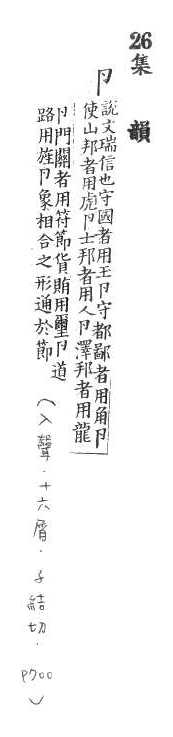 26集韻
卪
說文瑞信也守國者用玉卪守都鄙者用角卪
使山邦者用虎卪士邦者用人卪澤邦者用龍
卪門關者用符節貨賄用璽卪道
路用旌卪象相合之形通於節
(入聲.十六屑.子結切.P700)